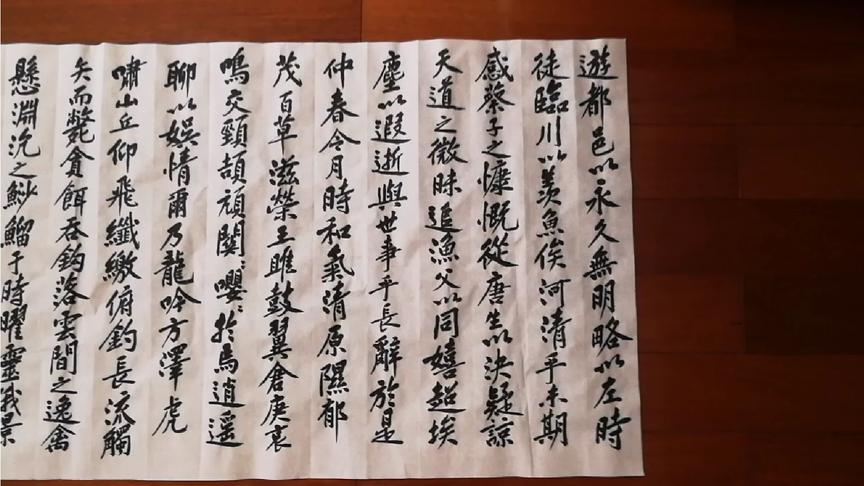 遊都邑以永久無明略以左時
徒臨川以羨魚俟河清乎未期
感蔡子之慷慨從唐生以決疑諒
天道之微昧追漁父以同嬉超埃
塵以遐逝與世事乎長辭於是
仲春令月時和氣清原隰郁
茂百草滋榮王雎鼓翼倉庚哀
鳴交頸頡頏關〻嚶〻於焉逍遥
聊以娛情爾乃龍吟方澤虎
嘯山丘仰飛纖繳俯釣長流觸
矢而斃貪餌吞鈎落雲間之逸禽
懸淵沉之魦鰡于時曜靈俄景